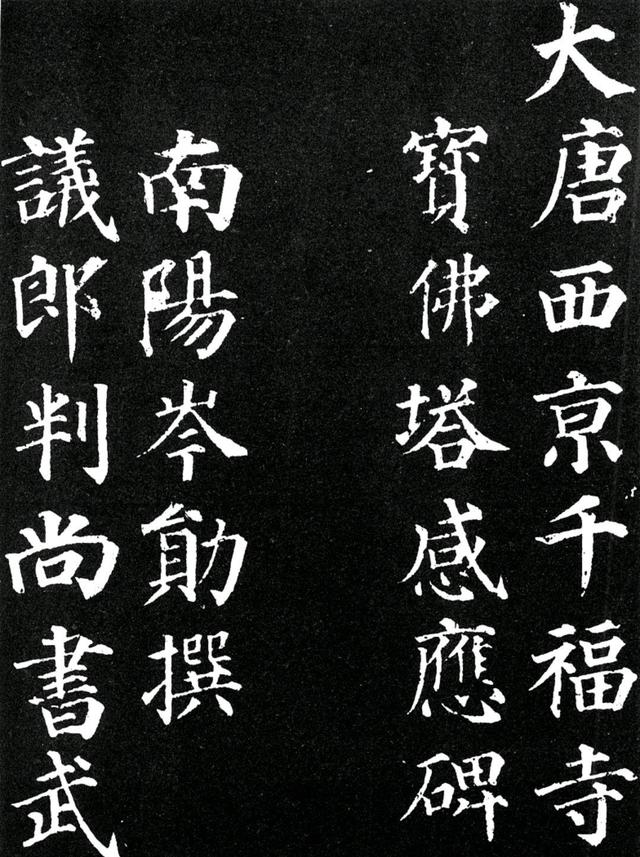 大唐西京千福寺
寶佛塔感應碑
南陽岑勛撰
議郎判尚書武